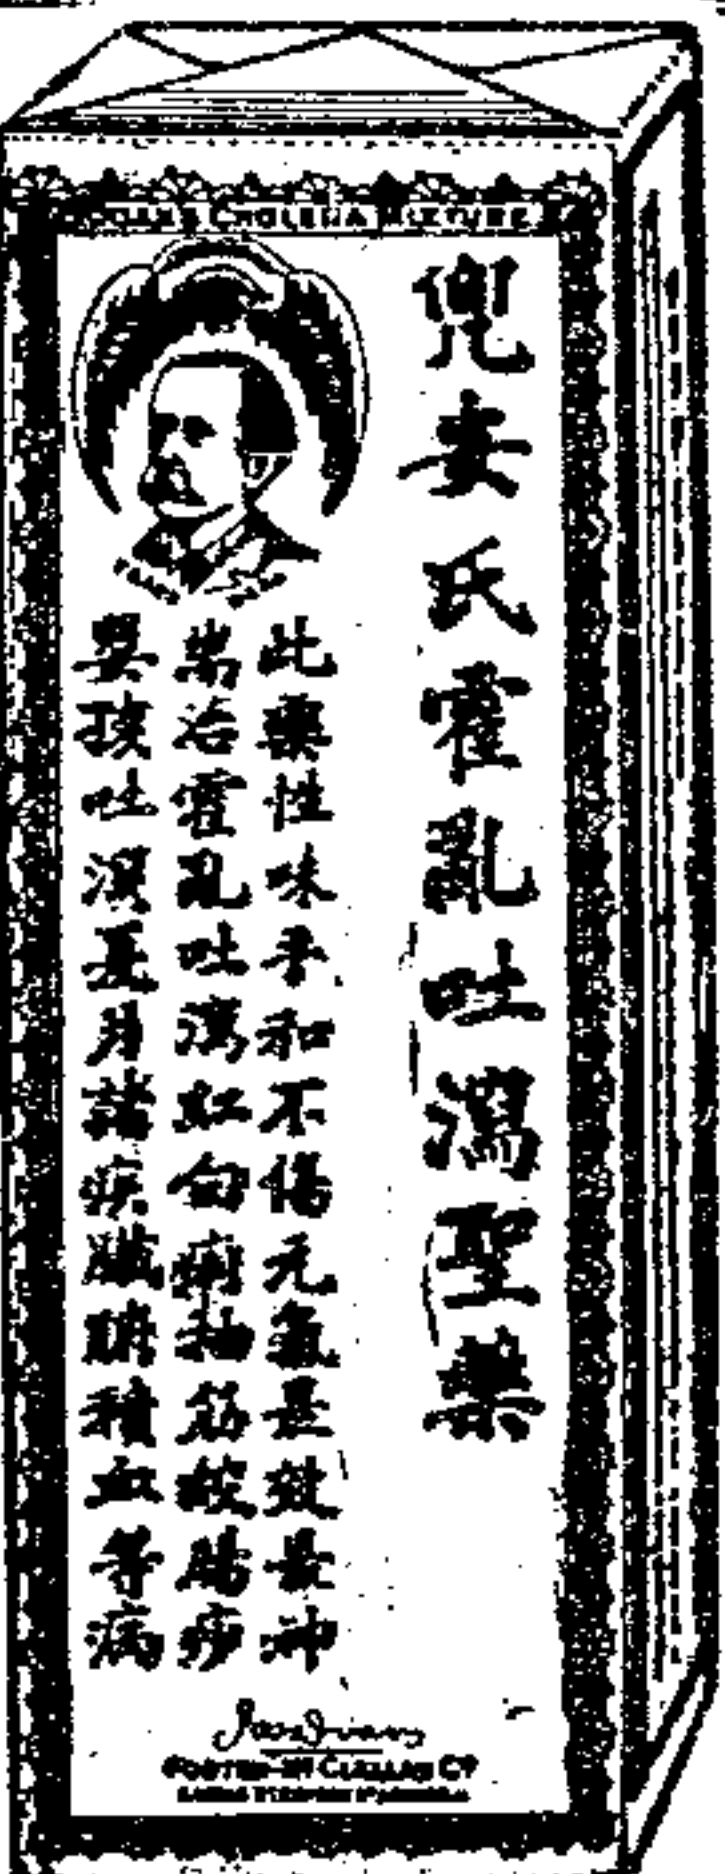 DOAN'S CHOLERA MIXTURE
兜安氏霍亂吐瀉聖藥
此藥性味平和不傷元氣是效最神
耑治霍亂吐瀉紅白痢抽筋絞腸痧
嬰孩吐瀉夏月諸疾臟腑積血等病
FOSTER-McCLELLAN Co